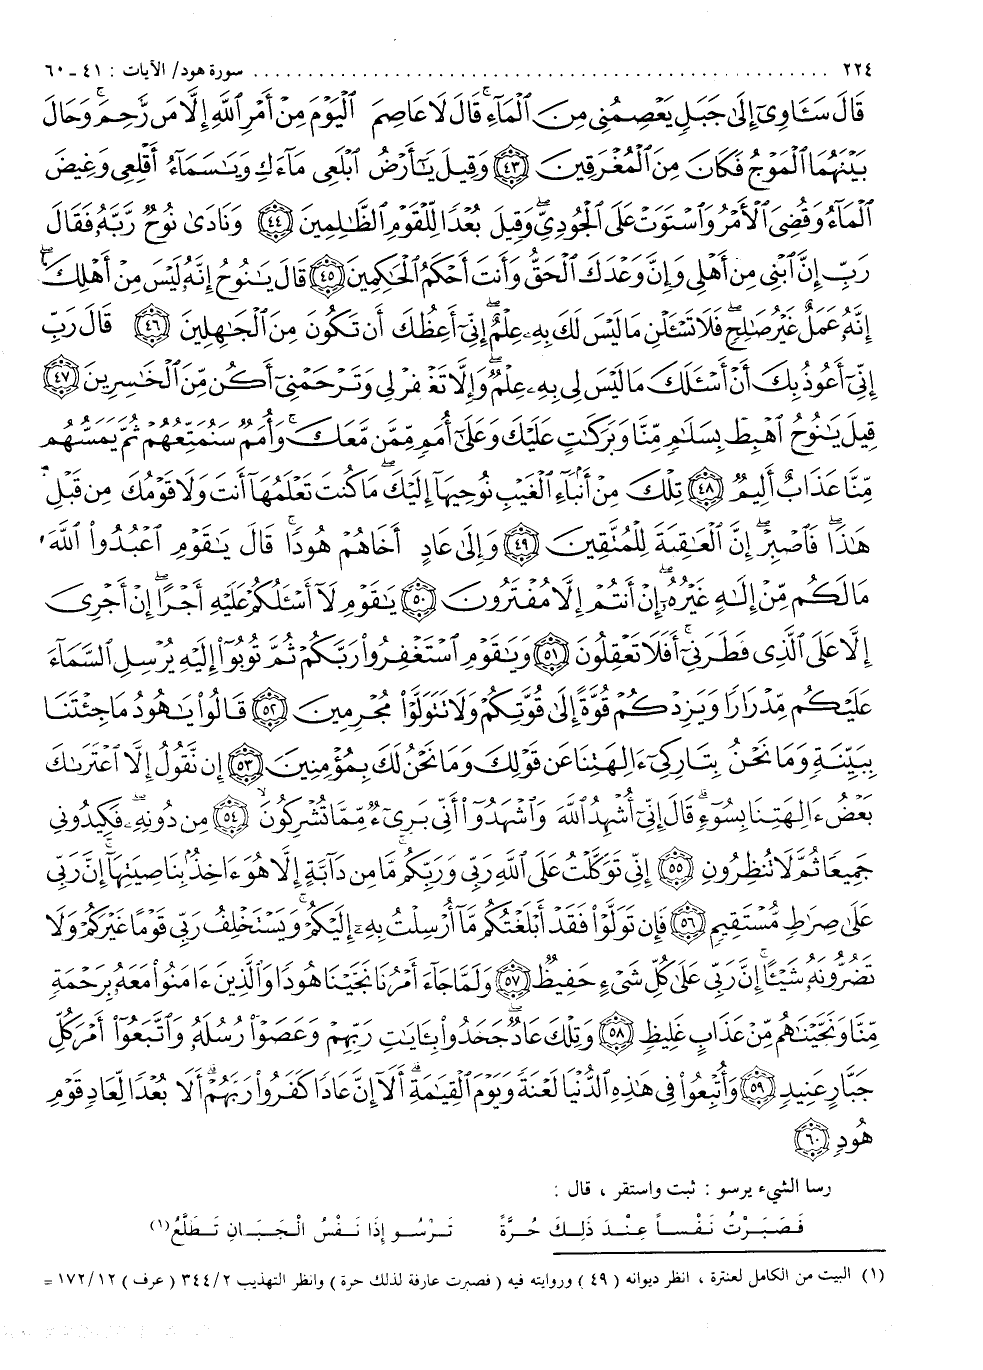 ٢٢٤ ........................................................ سورة هود/ الآيات : ٤١ ـ ٦٠
قَالَ سَـَٔاوِىٓ إِلَىٰ جَبَلٍ يَعْصِمُنِى مِنَ ٱلْمَآءِۚ قَالَ لَا عَاصِمَ ٱلْيَوْمَ مِنْ أَمْرِ ٱللَّهِ إِلَّا مَن رَّحِمَۚ وَحَالَ
بَيْنَهُمَا ٱلْمَوْجُ فَكَانَ مِنَ ٱلْمُغْرَقِينَ ٤٣ وَقِيلَ يَٰٓأَرْضُ ٱبْلَعِى مَآءَكِ وَيَٰسَمَآءُ أَقْلِعِى وَغِيضَ
ٱلْمَآءُ وَقُضِىَ ٱلْأَمْرُ وَٱسْتَوَتْ عَلَى ٱلْجُودِىِّۖ وَقِيلَ بُعْدًا لِّلْقَوْمِ ٱلظَّٰلِمِينَ ٤٤ وَنَادَىٰ نُوحٌ رَّبَّهُۥ فَقَالَ
رَبِّ إِنَّ ٱبْنِى مِنْ أَهْلِى وَإِنَّ وَعْدَكَ ٱلْحَقُّ وَأَنتَ أَحْكَمُ ٱلْحَٰكِمِينَ ٤٥ قَالَ يَٰنُوحُ إِنَّهُۥ لَيْسَ مِنْ أَهْلِكَۖ
إِنَّهُۥ عَمَلٌ غَيْرُ صَٰلِحٍۖ فَلَا تَسْـَٔلْنِ مَا لَيْسَ لَكَ بِهِۦ عِلْمٌۖ إِنِّىٓ أَعِظُكَ أَن تَكُونَ مِنَ ٱلْجَٰهِلِينَ ٤٦ قَالَ رَبِّ
إِنِّىٓ أَعُوذُ بِكَ أَنْ أَسْـَٔلَكَ مَا لَيْسَ لِى بِهِۦ عِلْمٌۖ وَإِلَّا تَغْفِرْ لِى وَتَرْحَمْنِىٓ أَكُن مِّنَ ٱلْخَٰسِرِينَ ٤٧
قِيلَ يَٰنُوحُ ٱهْبِطْ بِسَلَٰمٍ مِّنَّا وَبَرَكَٰتٍ عَلَيْكَ وَعَلَىٰٓ أُمَمٍ مِّمَّن مَّعَكَۚ وَأُمَمٌ سَنُمَتِّعُهُمْ ثُمَّ يَمَسُّهُم
مِّنَّا عَذَابٌ أَلِيمٌ ٤٨ تِلْكَ مِنْ أَنۢبَآءِ ٱلْغَيْبِ نُوحِيهَآ إِلَيْكَۖ مَا كُنتَ تَعْلَمُهَآ أَنتَ وَلَا قَوْمُكَ مِن قَبْلِ
هَٰذَاۖ فَٱصْبِرْۖ إِنَّ ٱلْعَٰقِبَةَ لِلْمُتَّقِينَ ٤٩ وَإِلَىٰ عَادٍ أَخَاهُمْ هُودًاۚ قَالَ يَٰقَوْمِ ٱعْبُدُوا۟ ٱللَّهَ
مَا لَكُم مِّنْ إِلَٰهٍ غَيْرُهُۥٓۖ إِنْ أَنتُمْ إِلَّا مُفْتَرُونَ ٥٠ يَٰقَوْمِ لَآ أَسْـَٔلُكُمْ عَلَيْهِ أَجْرًاۖ إِنْ أَجْرِىَ
إِلَّا عَلَى ٱلَّذِى فَطَرَنِىٓۚ أَفَلَا تَعْقِلُونَ ٥١ وَيَٰقَوْمِ ٱسْتَغْفِرُوا۟ رَبَّكُمْ ثُمَّ تُوبُوٓا۟ إِلَيْهِ يُرْسِلِ ٱلسَّمَآءَ
عَلَيْكُم مِّدْرَارًا وَيَزِدْكُمْ قُوَّةً إِلَىٰ قُوَّتِكُمْ وَلَا تَتَوَلَّوْا۟ مُجْرِمِينَ ٥٢ قَالُوا۟ يَٰهُودُ مَا جِئْتَنَا
بِبَيِّنَةٍ وَمَا نَحْنُ بِتَارِكِىٓ ءَالِهَتِنَا عَن قَوْلِكَ وَمَا نَحْنُ لَكَ بِمُؤْمِنِينَ ٥٣ إِن نَّقُولُ إِلَّا ٱعْتَرَىٰكَ
بَعْضُ ءَالِهَتِنَا بِسُوٓءٍۗ قَالَ إِنِّىٓ أُشْهِدُ ٱللَّهَ وَٱشْهَدُوٓا۟ أَنِّى بَرِىٓءٌ مِّمَّا تُشْرِكُونَۙ ٥٤ مِن دُونِهِۦۖ فَكِيدُونِى
جَمِيعًا ثُمَّ لَا تُنظِرُونِ ٥٥ إِنِّى تَوَكَّلْتُ عَلَى ٱللَّهِ رَبِّى وَرَبِّكُمۚ مَّا مِن دَآبَّةٍ إِلَّا هُوَ ءَاخِذٌۢ بِنَاصِيَتِهَآۚ إِنَّ رَبِّى
عَلَىٰ صِرَٰطٍ مُّسْتَقِيمٍ ٥٦ فَإِن تَوَلَّوْا۟ فَقَدْ أَبْلَغْتُكُم مَّآ أُرْسِلْتُ بِهِۦٓ إِلَيْكُمْۚ وَيَسْتَخْلِفُ رَبِّى قَوْمًا غَيْرَكُمْ وَلَا
تَضُرُّونَهُۥ شَيْـًٔاۚ إِنَّ رَبِّى عَلَىٰ كُلِّ شَىْءٍ حَفِيظٌ ٥٧ وَلَمَّا جَآءَ أَمْرُنَا نَجَّيْنَا هُودًا وَٱلَّذِينَ ءَامَنُوا۟ مَعَهُۥ بِرَحْمَةٍ
مِّنَّا وَنَجَّيْنَٰهُم مِّنْ عَذَابٍ غَلِيظٍ ٥٨ وَتِلْكَ عَادٌۖ جَحَدُوا۟ بِـَٔايَٰتِ رَبِّهِمْ وَعَصَوْا۟ رُسُلَهُۥ وَٱتَّبَعُوٓا۟ أَمْرَ كُلِّ
جَبَّارٍ عَنِيدٍ ٥٩ وَأُتْبِعُوا۟ فِى هَٰذِهِ ٱلدُّنْيَا لَعْنَةً وَيَوْمَ ٱلْقِيَٰمَةِۗ أَلَآ إِنَّ عَادًا كَفَرُوا۟ رَبَّهُمْۗ أَلَا بُعْدًا لِّعَادٍ قَوْمِ
هُودٍ ٦٠
رسا الشيء يرسو : ثبت واستقر ، قال :
فَصَبَرْتُ نَفْساً عِنْدَ ذَلِكَ حُرَّةً تَرْسُو إِذَا نَفْسُ الْجَبَانِ تَطَلَّعُ(١)
(١) البيت من الكامل لعنترة ، انظر ديوانه ( ٤٩ ) وروايته فيه ( فصبرت عارفة لذلك حرة ) وانظر التهذيب ٣٤٤/٢ ( عرف ) ١٧٢/١٢ =